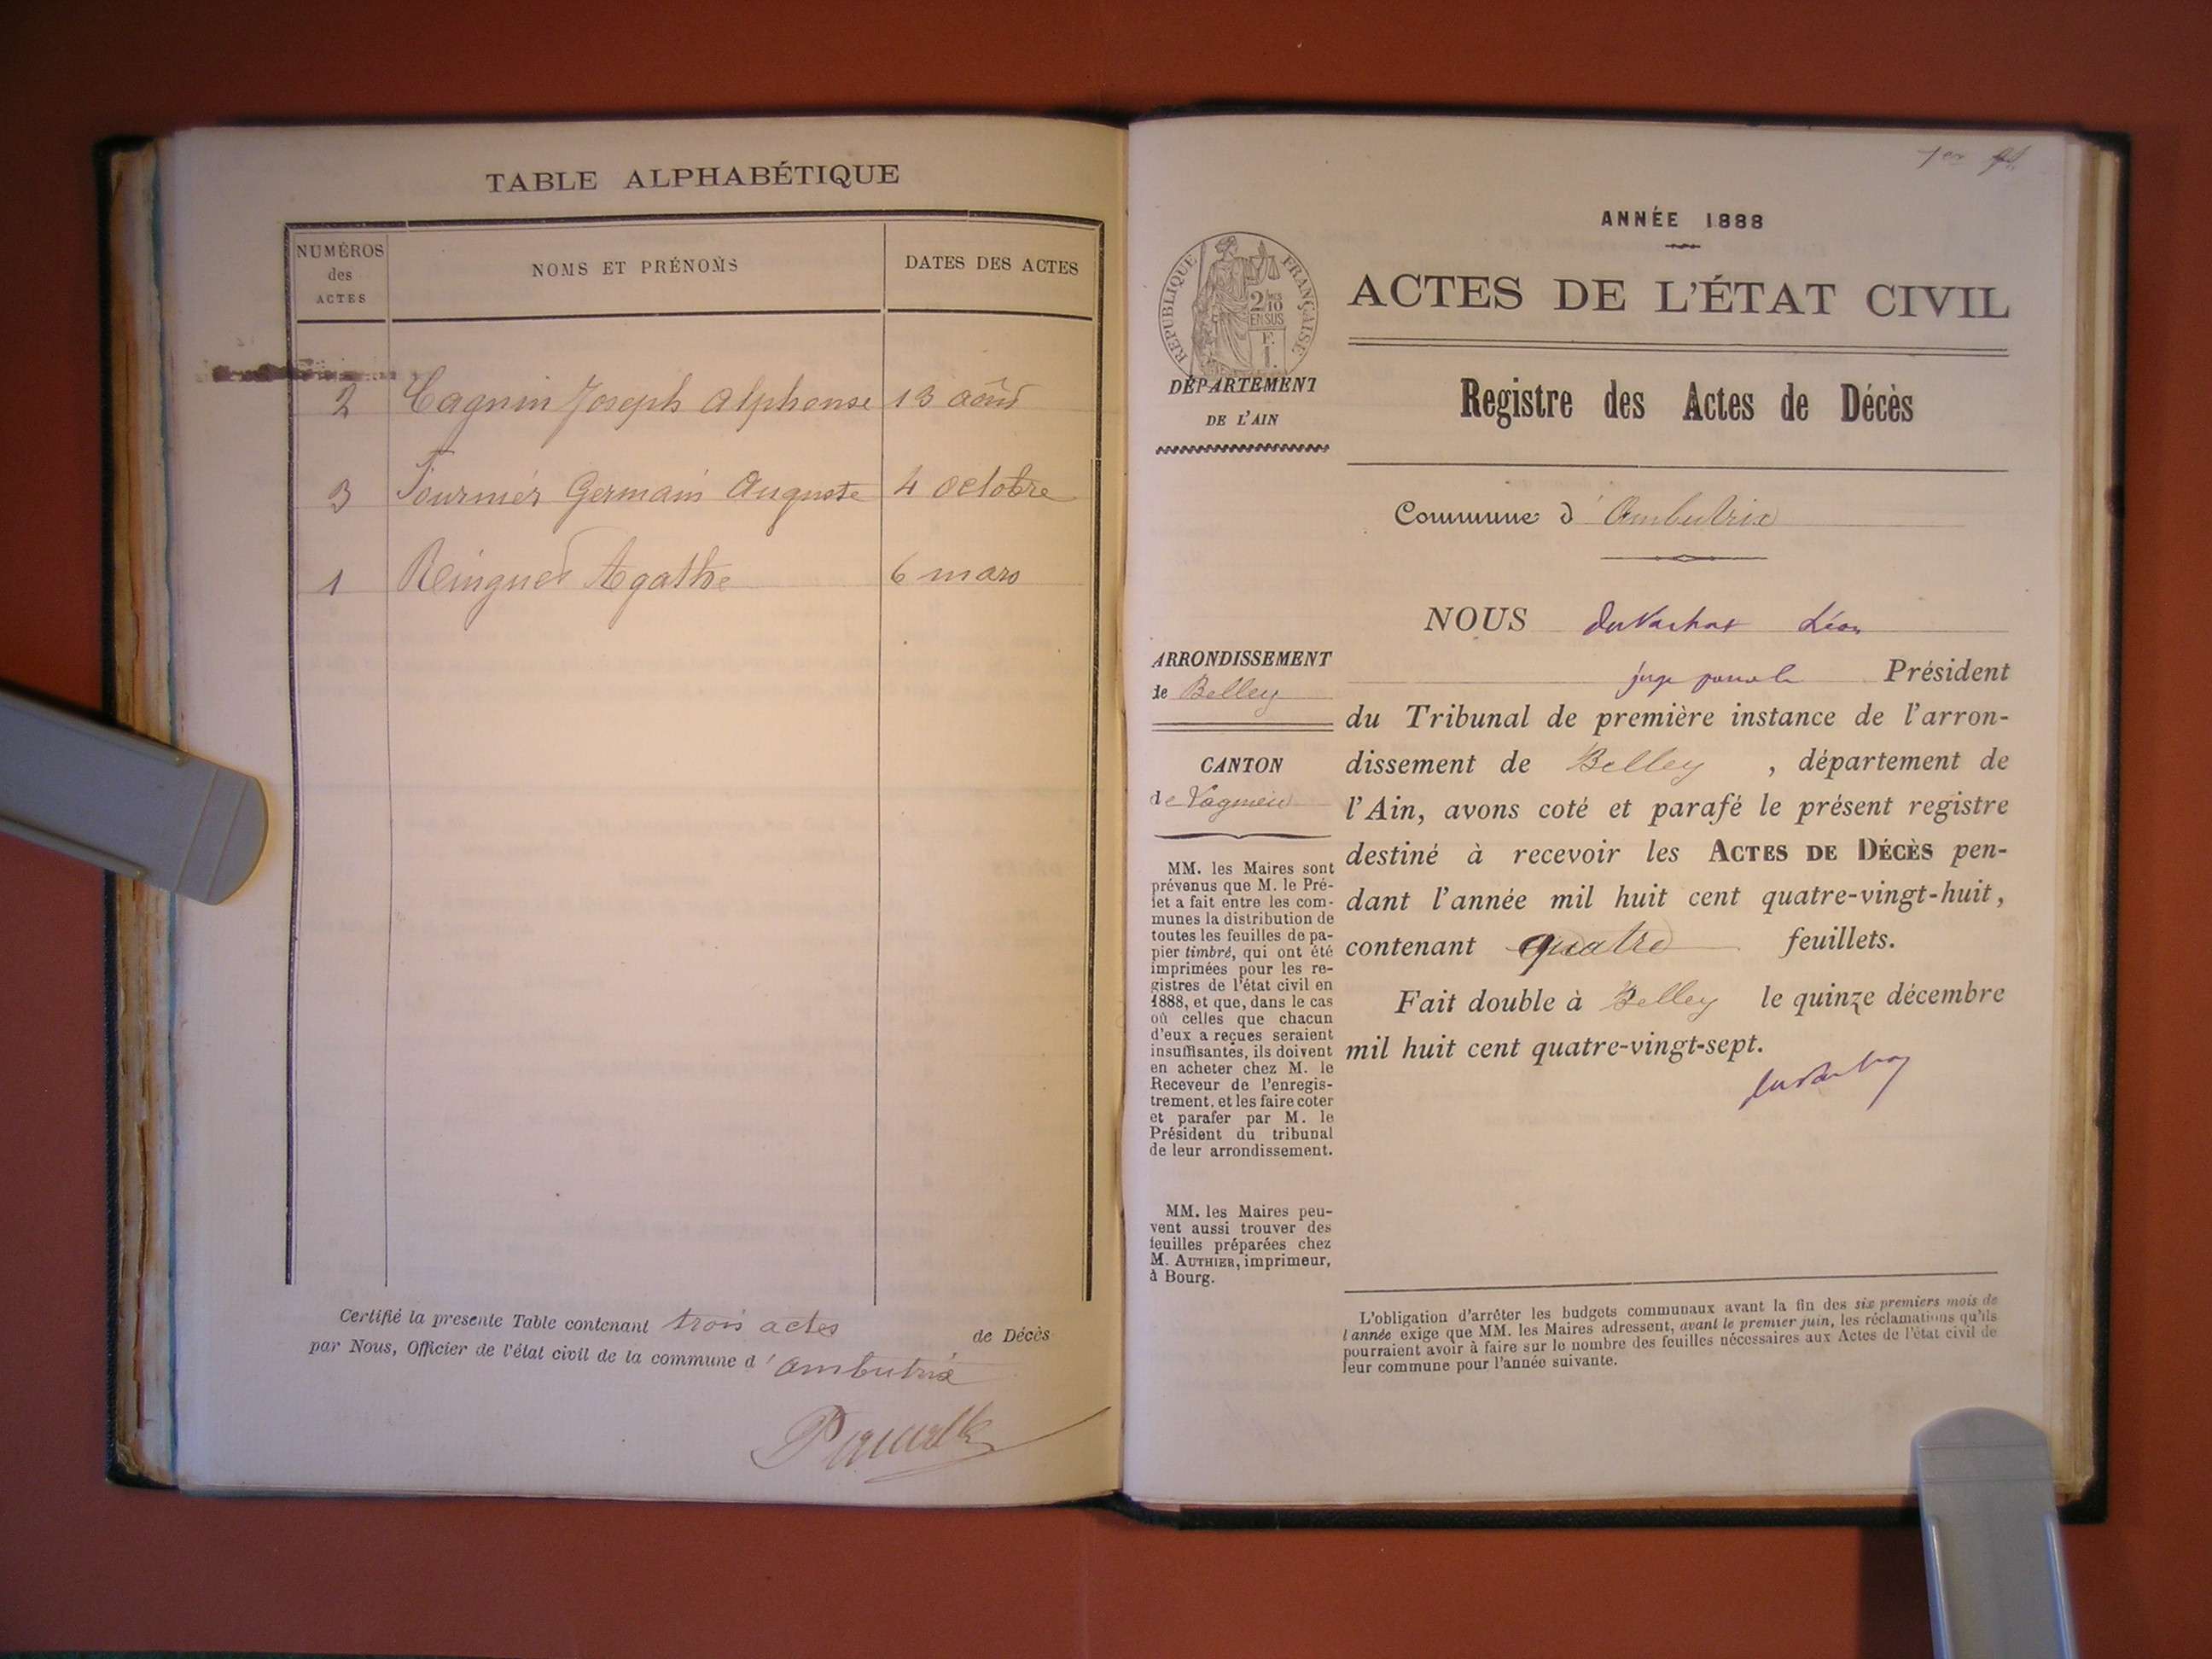 TABLE ALPHABÉTIQUE
NUMÉROS
des
ACTES
NOMS ET PRÉNOMS
DATES DES ACTES
2 Cagnin Joseph Alphonse 13 août
3 Fournier Germain Auguste 4 octobre
1 Reinguet Agathe 6 mars
Certifié la presente Table contenant trois actes de Décès
par Nous, Officier de l'état civil de la commune d'Ambutrix
1er
ANNÉE 1888
RÉPUBLIQUE FRANÇAISE
2/10
EN SUS
F.
1.
ACTES DE L'ÉTAT CIVIL
DÉPARTEMENT
DE L'AIN
Registre des Actes de Décès
Commune d'Ambutrix
NOUS Léon
juge Président
du Tribunal de première instance de l'arron-
dissement de Belley, département de
l'Ain, avons coté et parafé le présent registre
destiné à recevoir les ACTES DE DÉCÈS pen-
dant l'année mil huit cent quatre-vingt-huit,
contenant quatre feuillets.
Fait double à Belley le quinze décembre
mil huit cent quatre-vingt-sept.
ARRONDISSEMENT
de Belley
CANTON
de Lagnieu
MM. les Maires sont
prévenus que M. le Pré-
fet a fait entre les com-
munes la distribution de
toutes les feuilles de pa-
pier timbré, qui ont été
imprimées pour les re-
gistres de l'état civil en
1888, et que, dans le cas
où celles que chacun
d'eux a reçues seraient
insuffisantes, ils doivent
en acheter chez M. le
Receveur de l'enregis-
trement, et les faire coter
et parafer par M. le
Président du tribunal
de leur arrondissement.
MM. les Maires peu-
vent aussi trouver des
feuilles préparées chez
M. AUTHIER, imprimeur,
à Bourg.
L'obligation d'arrêter les budgets communaux avant la fin des six premiers mois de
l'année exige que MM. les Maires adressent, avant le premier juin, les réclamations qu'ils
pourraient avoir à faire sur le nombre des feuilles nécessaires aux Actes de l'état civil de
leur commune pour l'année suivante.